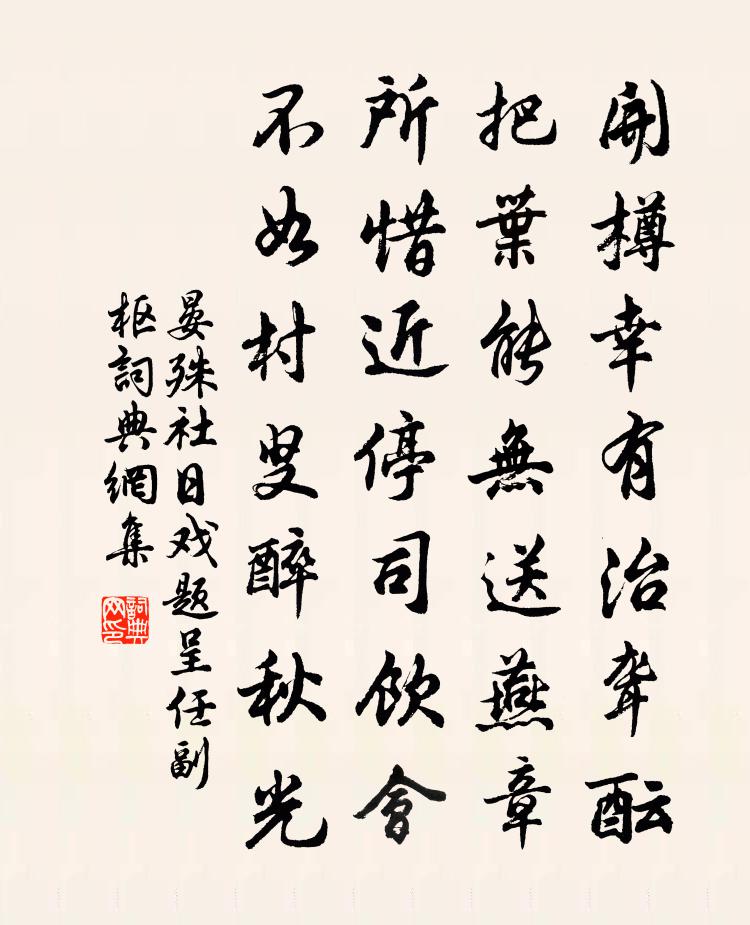 開樽幸有治聾酝
把葉能無送燕章
所惜近停司飲會
不如村叟醉秋光
晏殊社日戏题呈任副
枢詞典網集
詞典网印